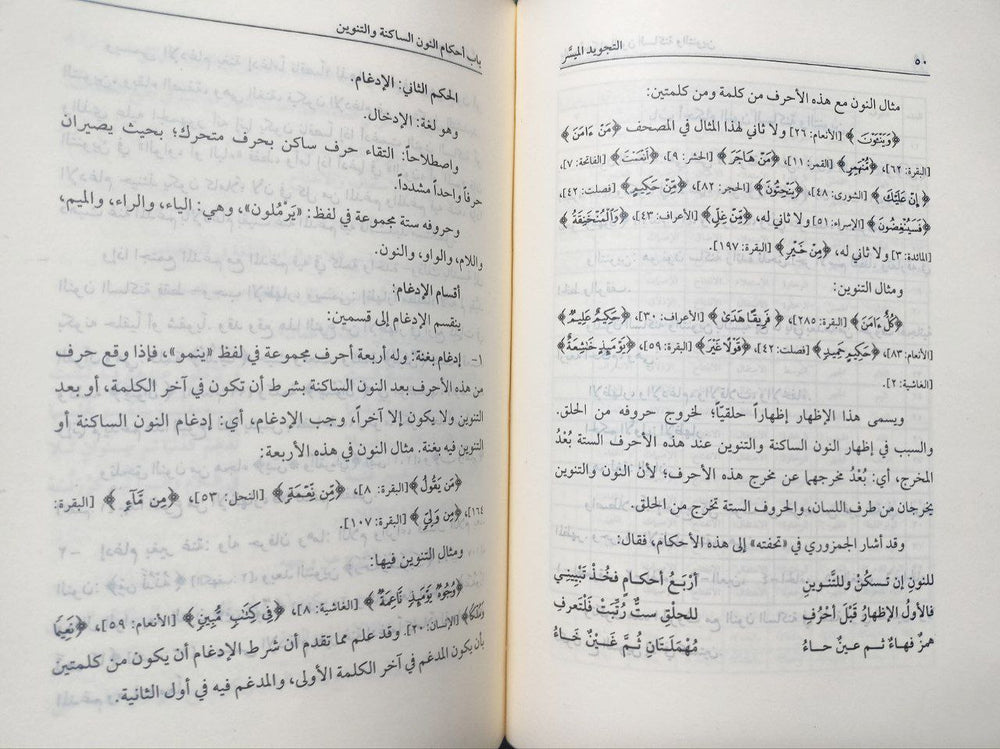 ٥٠
التجويد الميسَّر
مثال النون مع هذه الأحرف من كلمة ومن كلمتين:
﴿وَيَنْـَٔوْنَ﴾ [الأنعام: ٢٦] ولا ثاني لهذا المثال في المصحف ﴿مَنْ ءَامَنَ﴾
[البقرة: ٦٢]، ﴿مُّنْهَمِرٍ﴾ [القمر: ١١]، ﴿مَنْ هَاجَرَ﴾ [الحشر: ٩]، ﴿أَنْعَمْتَ﴾ [الفاتحة: ٧]،
﴿إِنْ عَلَيْكَ﴾ [الشورى: ٤٨]، ﴿يَنْحِتُونَ﴾ [الحجر: ٨٢]، ﴿مِّنْ حَكِيمٍ﴾ [فصلت: ٤٢]،
﴿فَسَيُنْغِضُونَ﴾ [الإسراء: ٥١] ولا ثاني له، ﴿مِّنْ غِلٍّ﴾ [الأعراف: ٤٣]، ﴿وَالْمُنْخَنِقَةُ﴾
[المائدة: ٣] ولا ثاني له، ﴿مِنْ خَيْرٍ﴾ [البقرة: ١٩٧].
ومثال التنوين:
﴿كُلٌّ ءَامَنَ﴾ [البقرة: ٢٨٥]، ﴿فَرِيقًا هَدَىٰ﴾ [الأعراف: ٣٠]، ﴿حَكِيمٌ عَلِيمٌ﴾
[الأنعام: ٨٣]، ﴿حَكِيمٍ حَمِيدٍ﴾ [فصلت: ٤٢]، ﴿قَوْلًا غَيْرَ﴾ [البقرة: ٥٩]، ﴿يَوْمَئِذٍ خَٰشِعَةٌ﴾
[الغاشية: ٢].
ويسمى هذا الإظهار إظهاراً حلقيّاً؛ لخروج حروفه من الحلق.
والسبب في إظهار النون الساكنة والتنوين عند هذه الأحرف الستة بُعْدُ
المخرج، أي: بُعْدُ مخرجهما عن مخرج هذه الأحرف؛ لأن النون والتنوين
يخرجان من طرف اللسان، والحروف الستة تخرج من الحلق.
وقد أشار الجمزوري في «تحفته» إلى هذه الأحكام، فقال:
للنونِ إن تَسكُنْ وللتَّنوينِ أرْبَعُ أحكامٍ فخُذْ تَبْيِيني
فالأولُ الإظهارُ قَبْلَ أَحْرُفِ للحلْقِ ستٌّ رُتِّبَتْ فلْتَعرفِ
همزٌ فهاءٌ ثم عينٌ حاءُ مُهْمَلَتَانِ ثُمَّ غَيْنٌ خَاءُ
باب أحكام النون الساكنة والتنوين
الحكم الثاني: الإدغام.
وهو لغة: الإدخال.
واصطلاحاً: التقاء حرف ساكن بحرف متحرك؛ بحيث يصيران
حرفاً واحداً مشدداً.
وحروفه ستة مجموعة في لفظ: «يَرْمُلون»، وهي: الياء، والراء، والميم،
واللام، والواو، والنون.
أقسام الإدغام:
ينقسم الإدغام إلى قسمين:
١- إدغام بغنة: وله أربعة أحرف مجموعة في لفظ «ينمو»، فإذا وقع حرف
من هذه الأحرف بعد النون الساكنة بشرط أن تكون في آخر الكلمة، أو بعد
التنوين ولا يكون إلا آخراً، وجب الإدغام، أي: إدغام النون الساكنة أو
التنوين فيه بغنة. مثال النون في هذه الأربعة:
﴿مَن يَقُولُ﴾ [البقرة: ٨]، ﴿مِّن نِّعْمَةٍ﴾ [النحل: ٥٣]، ﴿مِن مَّآءٍ﴾ [البقرة:
١٦٤]، ﴿مِن وَلِيٍّ﴾ [البقرة: ١٠٧].
ومثال التنوين فيها:
﴿وُجُوهٌ يَوْمَئِذٍ نَّاعِمَةٌ﴾ [الغاشية: ٨]، ﴿فِي كِتَٰبٍ مُّبِينٍ﴾ [الأنعام: ٥٩]، ﴿نَعِيمًا
وَمُلْكًا﴾ [الإنسان: ٢٠]. وقد علم مما تقدم أن شرط الإدغام أن يكون من كلمتين
بأن يكون المدغم في آخر الكلمة الأولى، والمدغم فيه في أول الثانية.